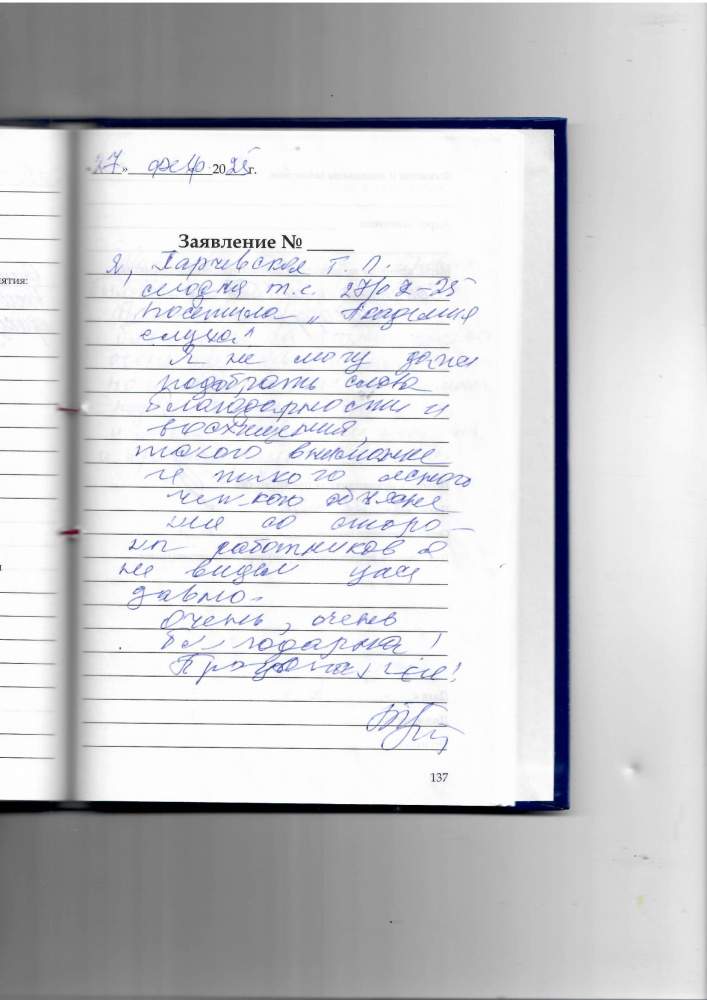 «27» февр 2025г.
Заявление № ____
Я, Парчевская Т. П.
сегодня т.е. 27/02-25
посетила „Академия
слуха"
Я не могу даже
подобрать слова
благодарности и
восхищения,
такого внимание
и такого ясного
четкого объясне
ния со сторо-
ны работников я
не видела уже
давно.
Очень, очень
благодарна!
ятия:
137